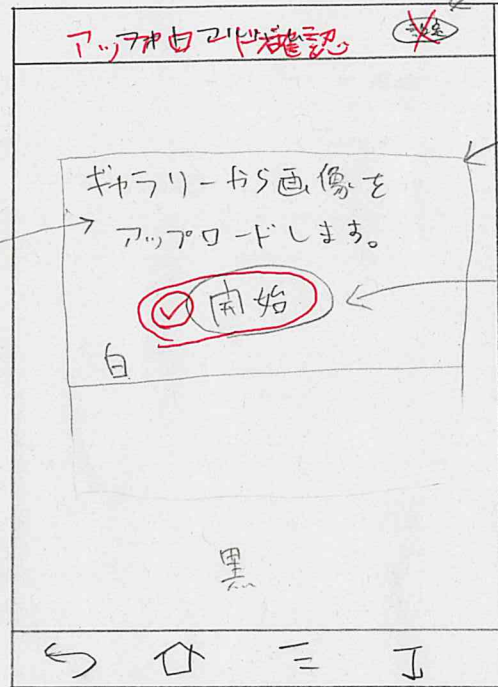 アップロード確認
ギャラリーから画像を
アップロードします。
開始
白
黒